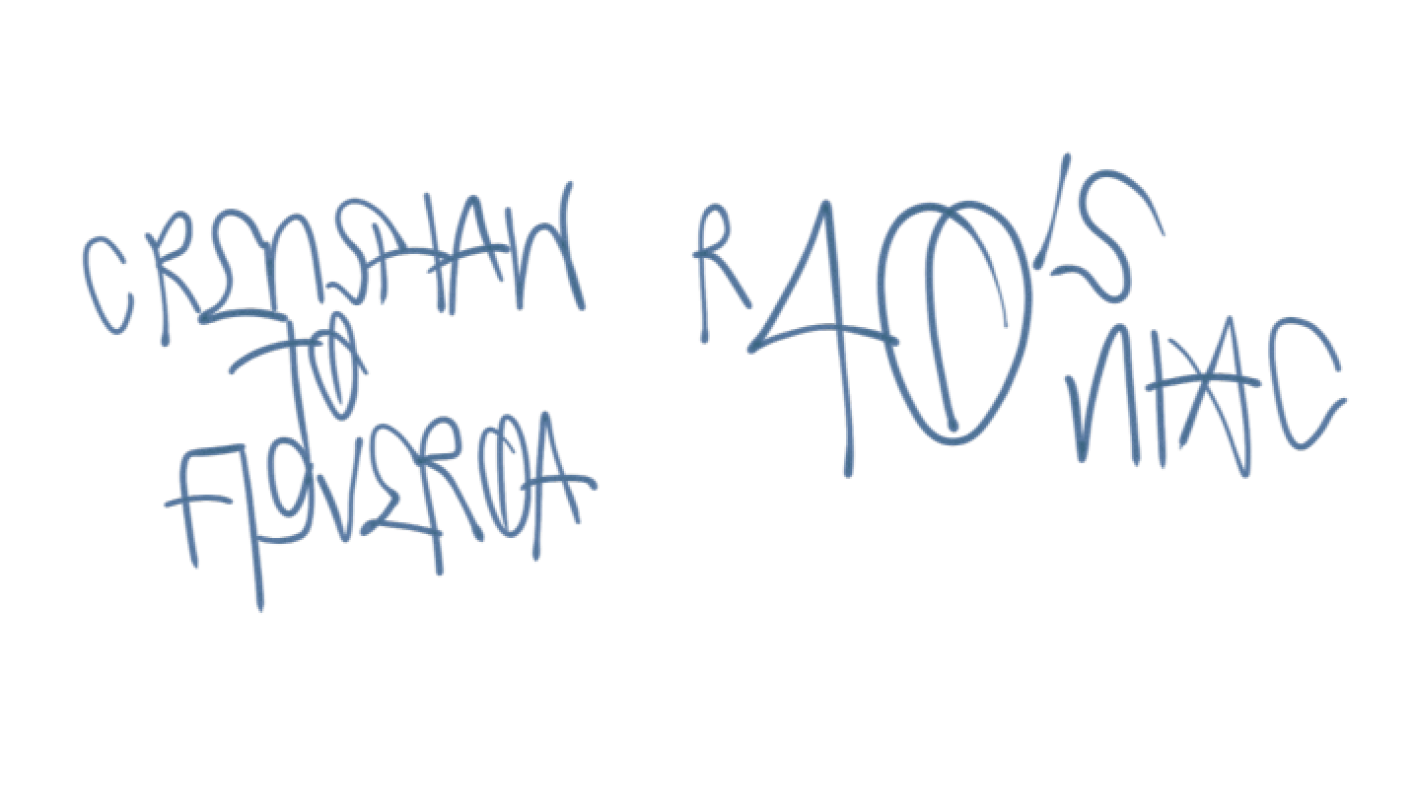 CRENSHAW
TO
FIGUEROA
R40'S
NHC